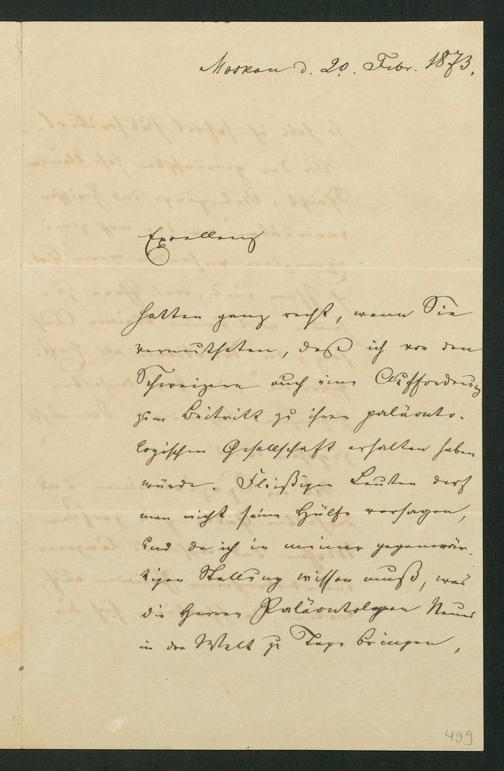 Moskau d. 20. Febr. 1873.
Excellenz
hatten ganz recht, wenn Sie
vermutheten, daß ich von den
Schweizern auch eine Aufforderung
zum Beitritt zu ihrer paläonto-
logischen Gesellschaft erhalten haben
würde. Fleißigen Leuten darf
man nicht seine Hülfe versagen,
und da ich in meiner gegenwär-
tigen Stellung wissen muß, was
die Herren Paläontologen Neues
in der Welt zu Tage bringen,
499